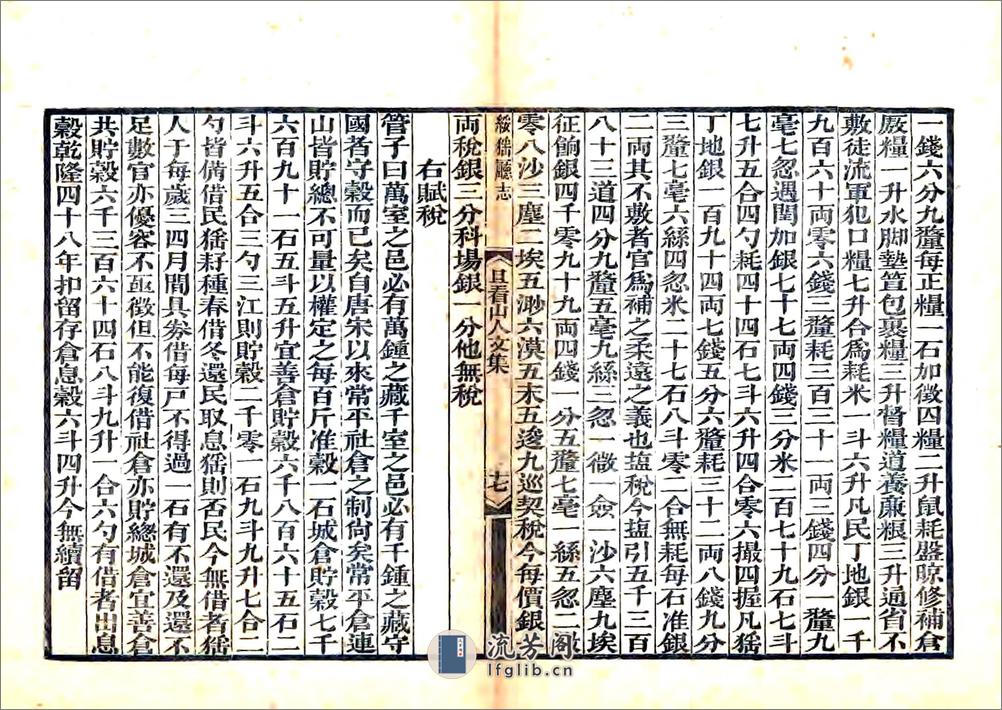 一錢六分九釐每正糧一石加徵四糧二升鼠耗盤晾修補倉
厫糧一升水脚墊笪包裹糧三升督糧道養亷粮三升通省不
敷徒流軍犯口糧七升合爲耗米一斗六升凡民丁地銀一千
九百六十両零六錢三釐耗三百三十一両三錢四分一釐九
毫七忽遇閏加銀七十七両四錢三分米二百七十九石七斗
七升五合四勺耗四十四石七斗六升四合零六撮四握凡猺
丁地銀一百九十四両七錢五分六釐耗三十二両八錢九分
三釐七毫六絲四忽米二十七石八斗零二合無耗每石准銀
二両其不敷者官爲補之柔遠之義也塩稅今塩引五千三百
八十三道四分九釐五毫九絲三忽一徵一僉一沙六塵九埃
征餉銀四千零九十九両四錢一分五釐七毫一絲五忽二㣲
零八沙三塵二埃五渺六漠五末五逡九巡契稅今每價銀一
両稅銀三分科場銀一分他無稅
綏猺廳志
旦看山人文集
十七
右賦稅
管子曰萬室之邑必有萬鍾之藏千室之邑必有千鍾之藏守
國者守穀而已矣自唐宋以來常平社倉之制尙矣常平倉連
山皆貯總不可量以權定之每百斤准穀一石城倉貯穀七千
六百九十一石五斗五升宜善倉貯穀六千八百六十五石二
斗六升五合三勺三江則貯穀二千零一石九斗九升七合二
勺皆倩借民猺耔種春借冬還民取息猺則否民今無借者猺
人于每歲三四月間具劵借每戸不得過一石有不還及還不
足數官亦優容不亟徵但不能復借社倉亦貯總城倉宜善倉
共貯穀六千三百六十四石八斗九升一合六勺有借者出息
穀乾隆四十八年扣留存倉息穀六斗四升今無續留
流芳閣
lfglib.cn